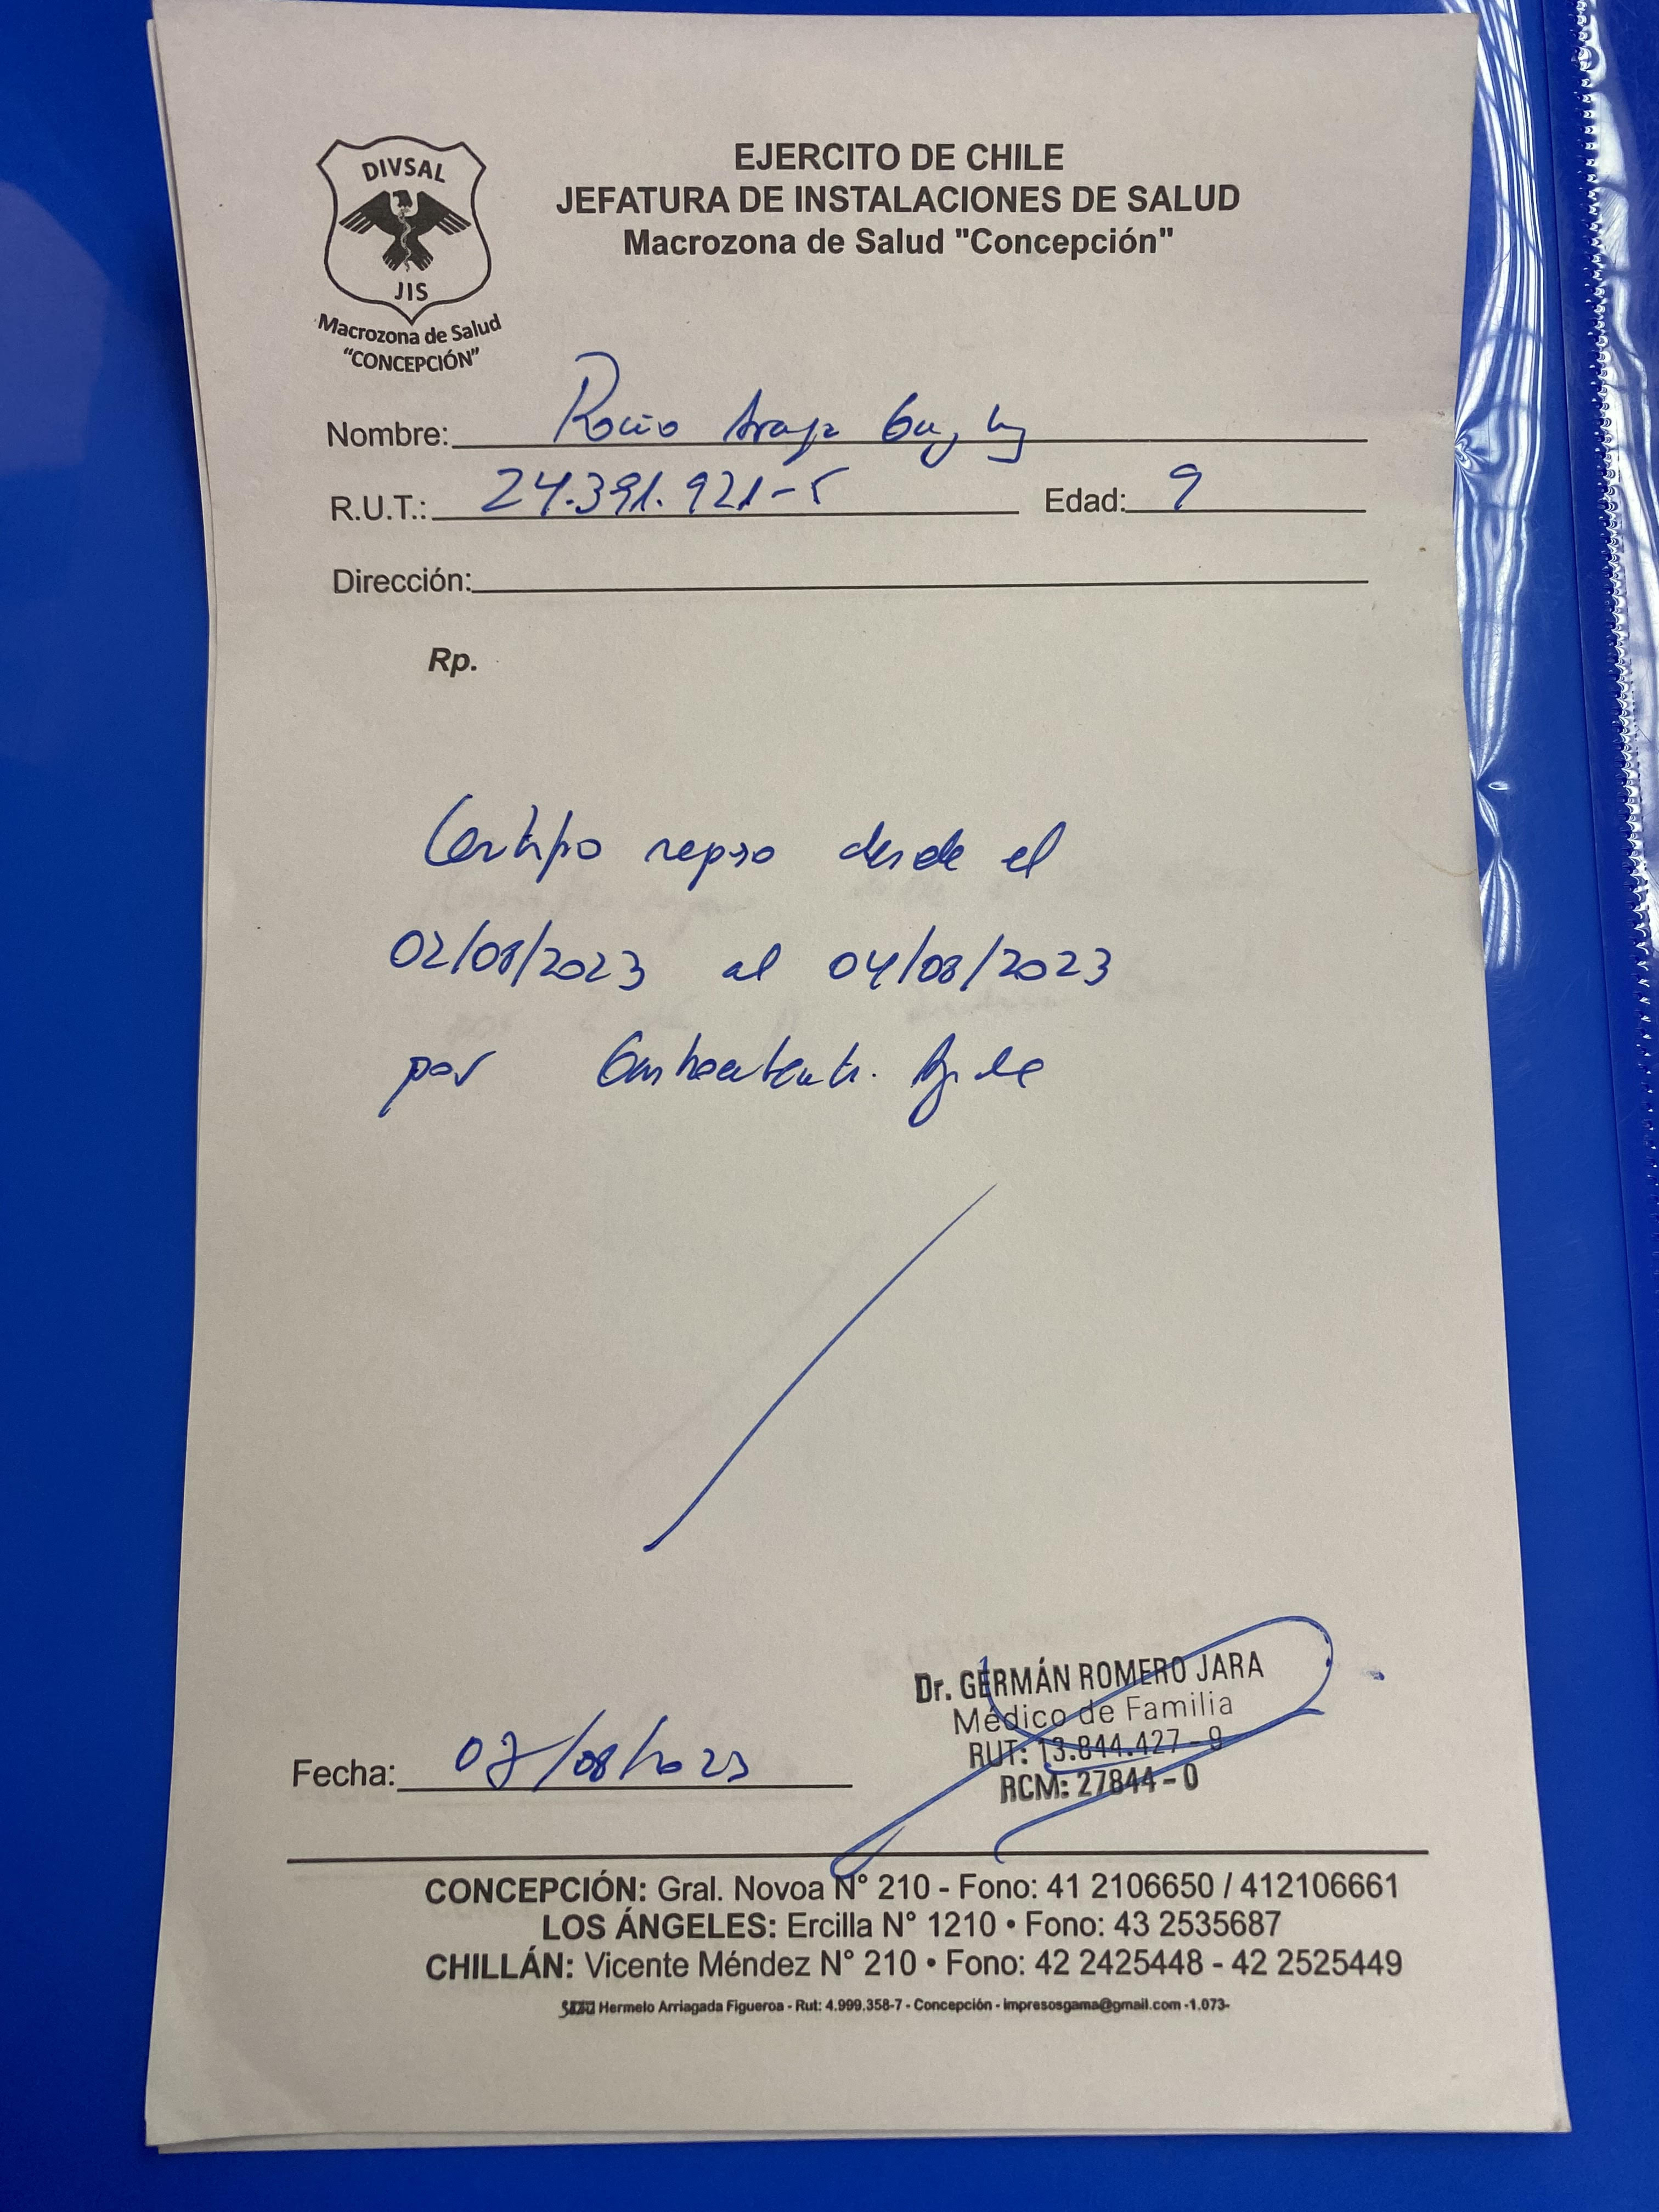 DIVSAL
JIS
Macrozona de Salud
"CONCEPCIÓN"
EJERCITO DE CHILE
JEFATURA DE INSTALACIONES DE SALUD
Macrozona de Salud "Concepción"
Nombre: Rocio Araya
R.U.T.: 24.391.921-5 Edad: 9
Dirección:
Rp.
Certifico reposo desde el
02/08/2023 al 04/08/2023
por
Fecha: 07/08/2023
Dr. GERMÁN ROMERO JARA
Médico de Familia
RUT: 13.844.427-9
RCM: 27844-0
CONCEPCIÓN: Gral. Novoa N° 210 - Fono: 41 2106650 / 412106661
LOS ÁNGELES: Ercilla N° 1210 • Fono: 43 2535687
CHILLÁN: Vicente Méndez N° 210 • Fono: 42 2425448 - 42 2525449
Hermelo Arriagada Figueroa - Rut: 4.999.358-7 - Concepción - impresosgama@gmail.com -1.073-